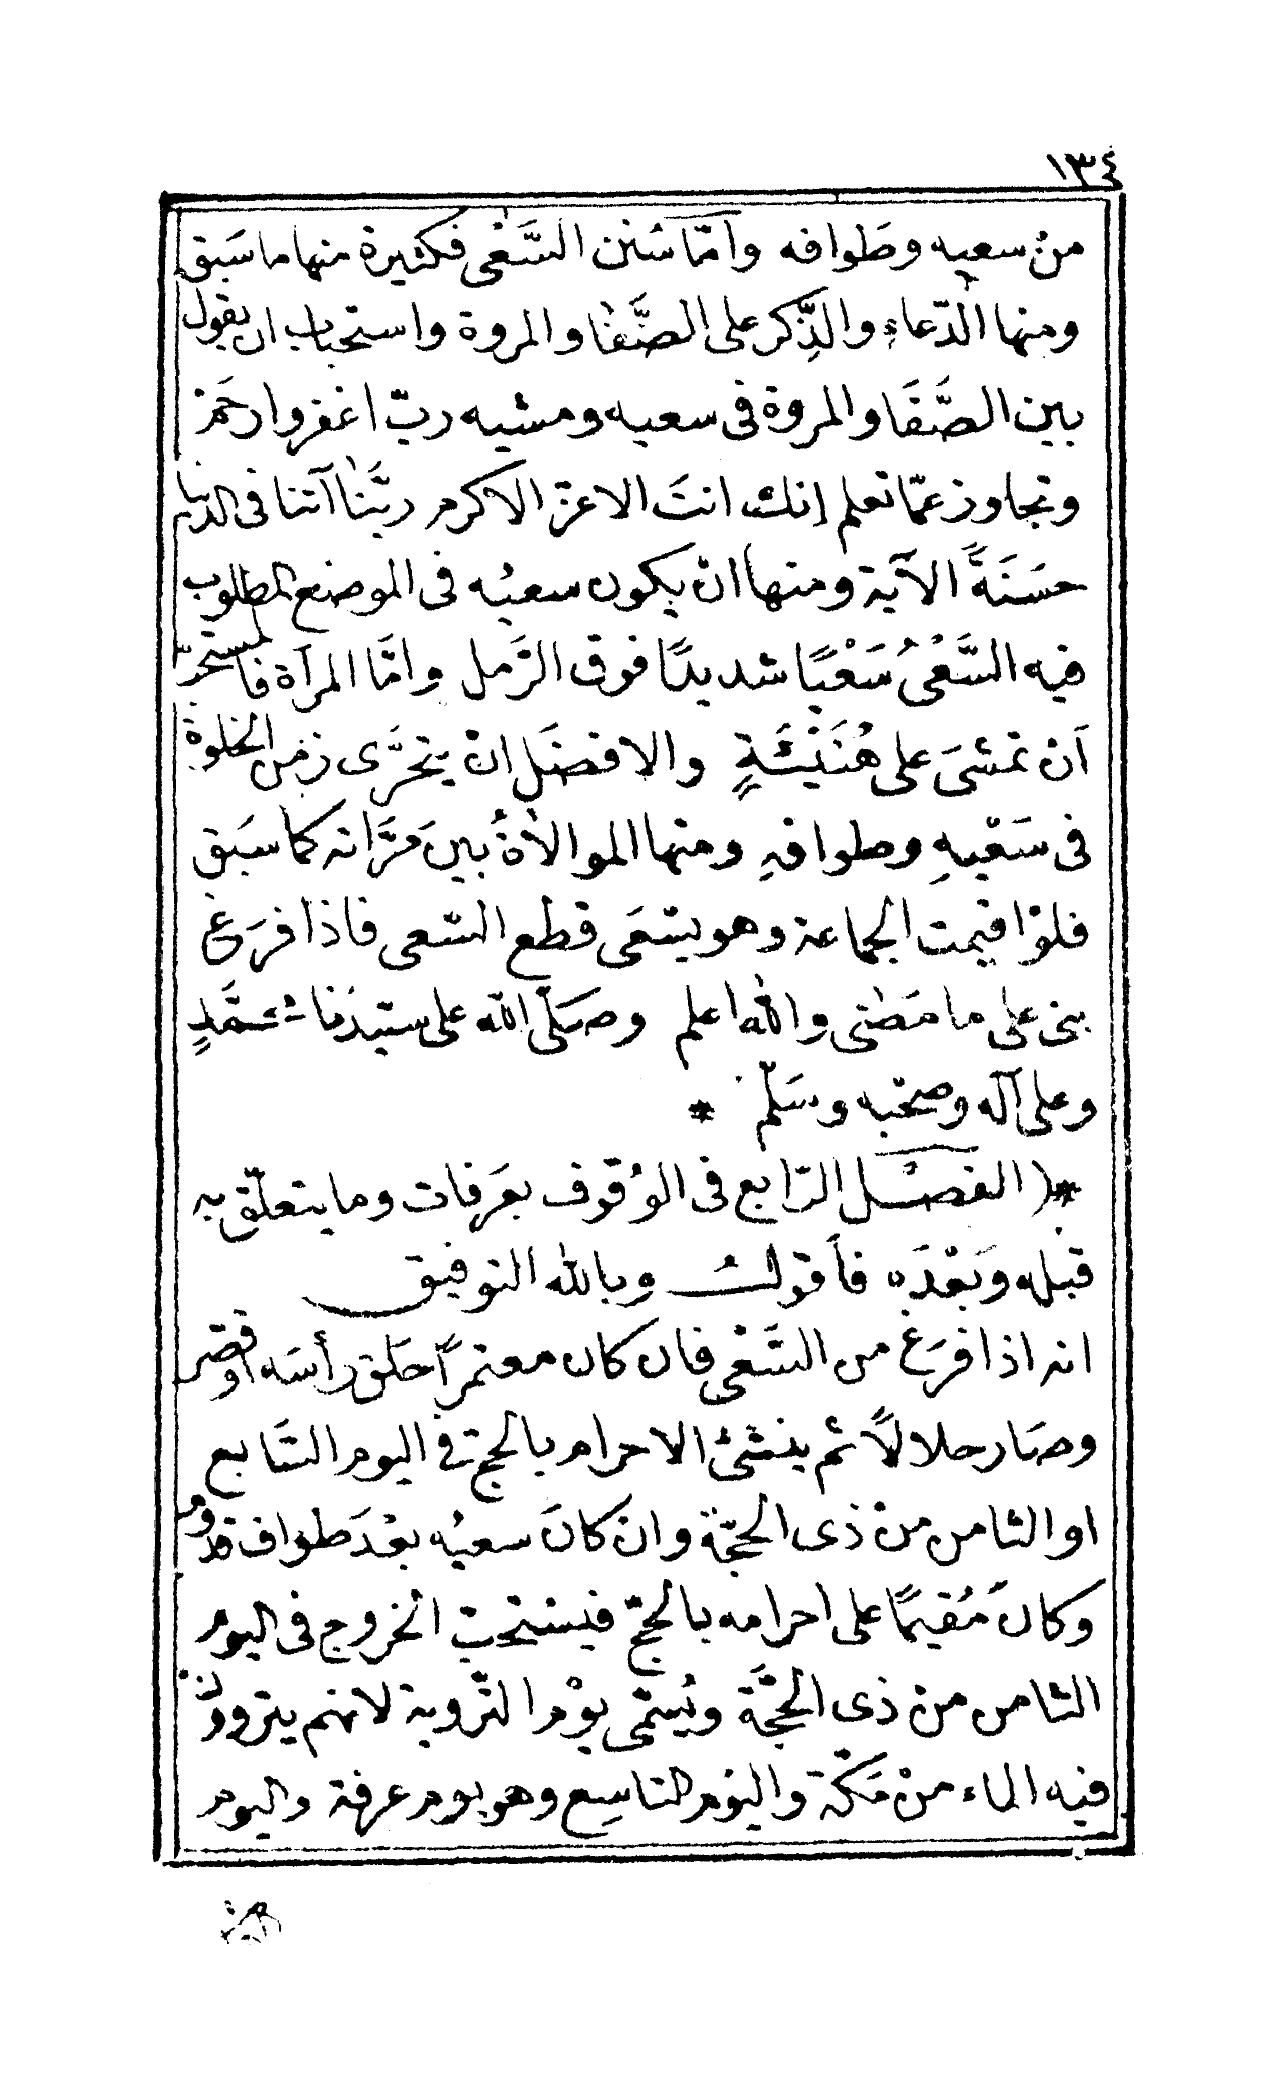 ١٣٤
منْ سعيه وطَوافه وأمّا سُنن السَّعْى فكثيرة منها ما سَبَق
ومنها الدّعاء والذِّكر على الصَّفا والمروة واستحباب ان يقول
بين الصَّفَا والمروة فى سعيه ومشيه ربّ اغفر وارحَمْ
وتجاوز عمّا تعلم إنك انتَ الاعزّ الاكرم ربَّنا آتنا فى الدنيا
حسَنَةً الآية ومنها انْ يكون سعيُه فى الموضع المطلوب
فيه السَّعْىُ سَعْيًا شديدًا فوق الرَّمل وامَّا المرآة فالمستحبّ
اَنْ تمشىَ على هُنَيْئَةٍ والافضَل انْ يتحرَّى زمن الخلوة
فى سَعْيهِ وطوافهِ ومنها الموالاةُ بينَ مرَّاته كما سبَق
فلوْ اقيمت الجماعة وهو يسْعَى قطع السّعى فاذا فرَغ
بنى على ما مَضى والله اعلم وصَلّى اللّه على سيّدنا محمَّدٍ
وعلى آله وصحْبه وسَلّم *
*( الفصْل الرّابع فى الوُقوف بعَرفات وما يتعلّق به
قبله وبَعْدَه فأقولُ وبالله التوفيق
انه اذا فرَغ من السَّعْى فان كان معتمرًا حلَق رأسَه اوقصّر
وصَار حلالًا ثم ينشئُ الاحرام بالحج فى اليوم السَّابع
او الثامن منْ ذى الحجّة وانْ كانَ سعيُه بعْدَ طوَاف قدوم
وكان مُقيمًا على احرامه بالحجّ فيستحبّ الخروج فى اليوم
الثامن منْ ذى الحجَّة ويُسمّى يوْم التّروية لانهم يتروونْ
فيه الماء منْ مَكّة واليوْم التاسِع وهو يوم عرفة واليوم